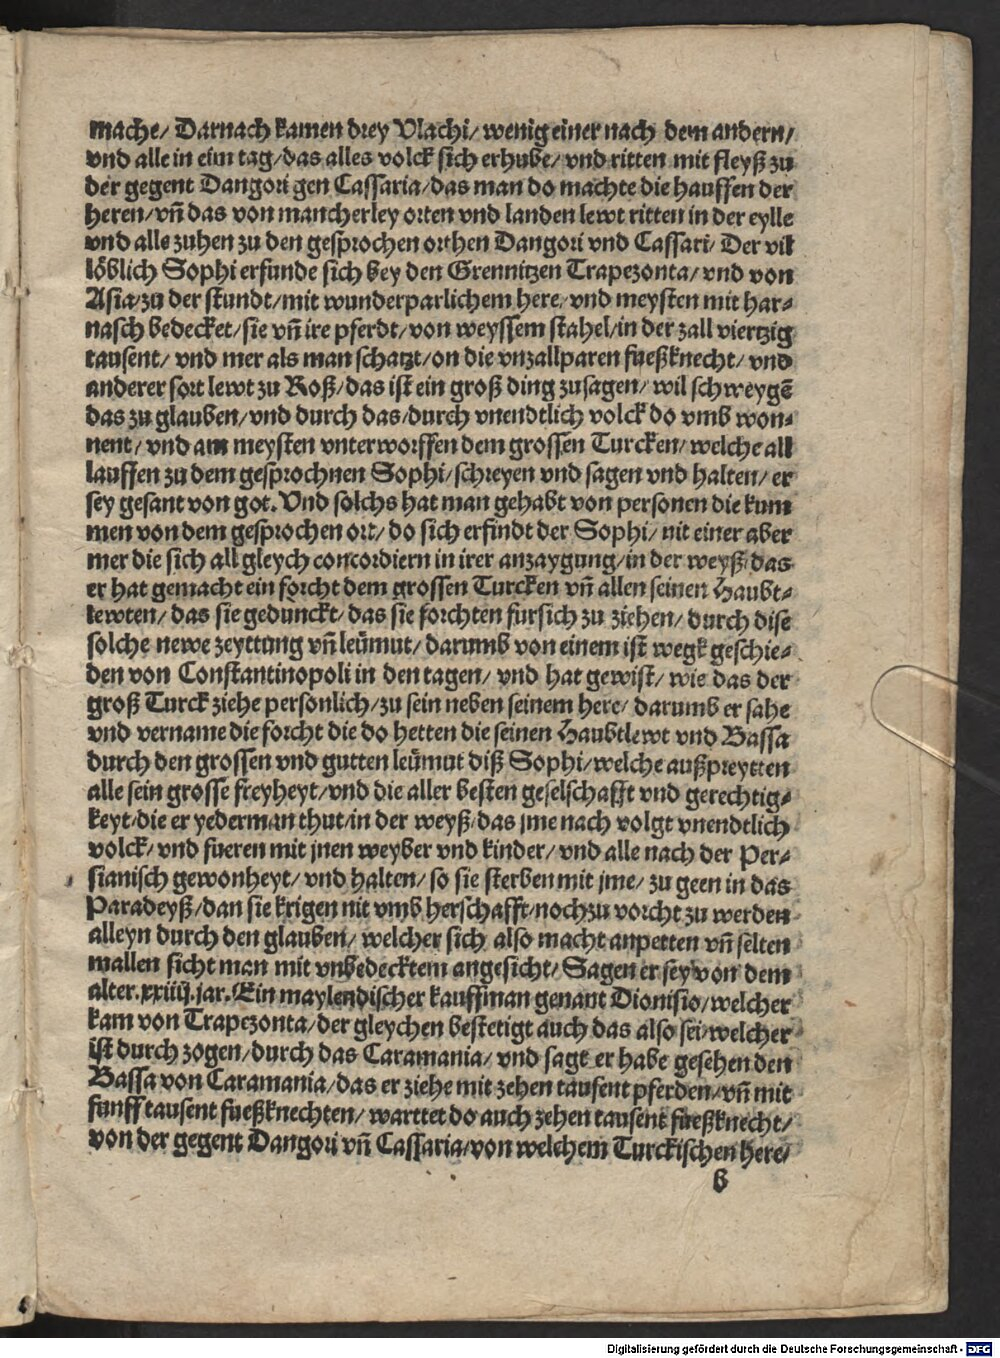 mache/ Darnach kamen drey Vlachi/ wenig einer nach dem andern/
vnd alle in eim tag/ das alles volck sich erhube/ vnd ritten mit fleyß zu
der gegent Dangori gen Cassaria/ das man do machte die hauffen der
heren/ vñ das von mancherley orten vnd landen lewt ritten in der eylle
vnd alle zuhen zu den gesprochen orthen Dangori vnd Cassari/ Der vil
löblich Sophi erfunde sich bey den Grennitzen Trapezonta/ vnd von
Asia/ zu der stundt/ mit wunderparlichem here/ vnd meysten mit har⸗
nasch bedecket/ sie vñ ire pferdt/ von weyssem stahel/ in der zall viertzig
tausent/ vnd mer als man schatzt/ on die vnzallparen fueßknecht/ vnd
anderer sort lewt zu Roß/ das ist ein groß ding zusagen/ wil schweygē
das zu glauben/ vnd durch das/ durch vnendtlich volck do vmb won⸗
nent/ vnd am meysten vnterworffen dem grossen Turcken/ welche all
lauffen zu dem gesprochnen Sophi/ schreyen vnd sagen vnd halten/ er
sey gesant von got. Vnd solchs hat man gehabt von personen die kum
men von dem gesprochen ort/ do sich erfindt der Sophi/ nit einer aber
mer die sich all gleych concordiern in irer anzaygung/ in der weyß/ das
er hat gemacht ein forcht dem grossen Turcken vñ allen seinen Haubt⸗
lewten/ das sie gedunckt/ das sie forchten fursich zu ziehen/ durch dise
solche newe zeyttung vñ leümut/ darumb von einem ist wegk geschie⸗
den von Constantinopoli in den tagen/ vnd hat gewist/ wie das der
groß Turck ziehe personlich/ zu sein neben seinem here/ darumb er sahe
vnd vername die forcht die do hetten die seinen Haubtlewt vnd Bassa
durch den grossen vnd gutten leümut diß Sophi/ welche außpreytten
alle sein grosse freyheyt/ vnd die aller besten geselschafft vnd gerechtig⸗
keyt/ die er yederman thut/ in der weyß/ das jme nach volgt vnendtlich
volck/ vnd fueren mit jnen weyber vnd kinder/ vnd alle nach der Per⸗
sianisch gewonheyt/ vnd halten/ so sie sterben mit jme/ zu geen in das
Paradeyß/ dan sie krigen nit vmb herschafft/ noch zu vorcht zu werden
alleyn durch den glauben/ welcher sich also macht anpetten vñ selten
mallen sicht man mit vnbedecktem angesicht/ Sagen er sey von dem
alter .xxiiij. jar. Ein maylendischer kauffman genant Dionisio/ welcher
kam von Trapezonta/ der gleychen bestetigt auch das also sei/ welcher
ist durch zogen/ durch das Caramania/ vnd sagt er habe gesehen den
Bassa von Caramania/ das er ziehe mit zehen tausent pferden/ vñ mit
funff tausent fueßknechten/ warttet do auch zehen tausent fueßknecht/
von der gegent Dangori vñ Cassaria/ von welchem Turckischen here/
b
Digitalisierung gefördert durch die Deutsche Forschungsgemeinschaft - DFG